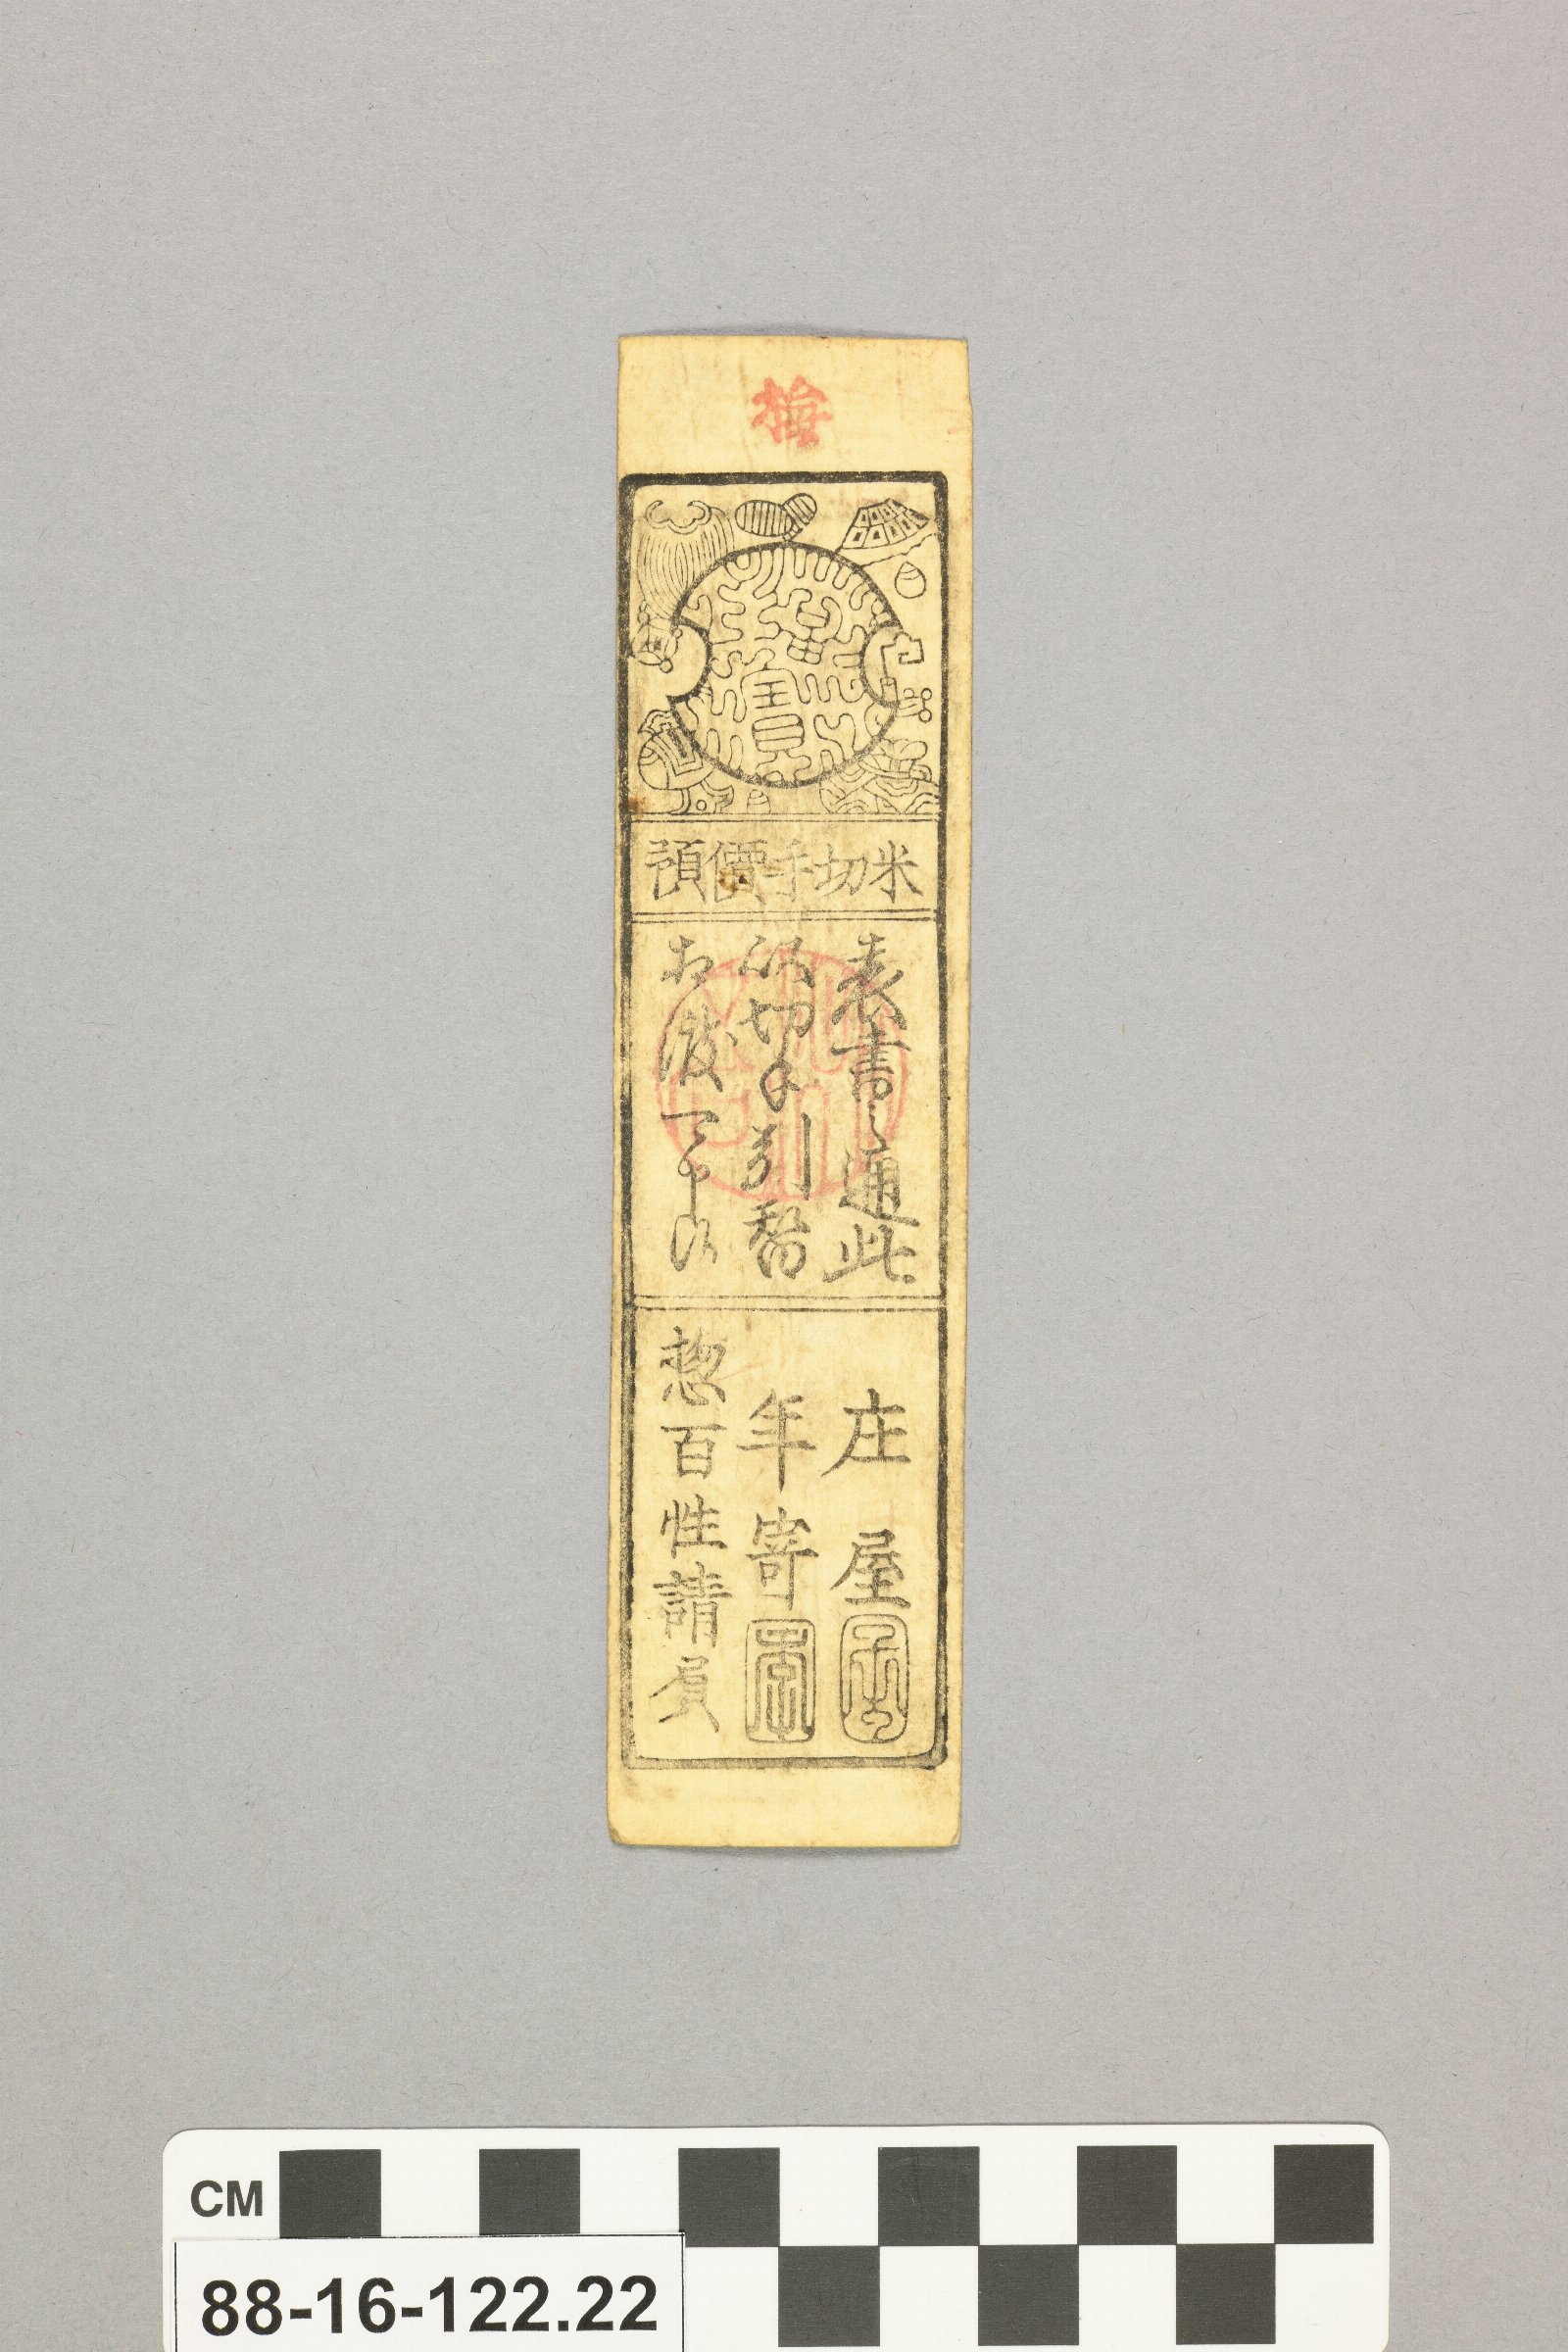 梅
寶
米切手價預
表書之通此
以切手引替
相渡可申候
庄屋
年寄
惣百性請負
CM
88-16-122.22